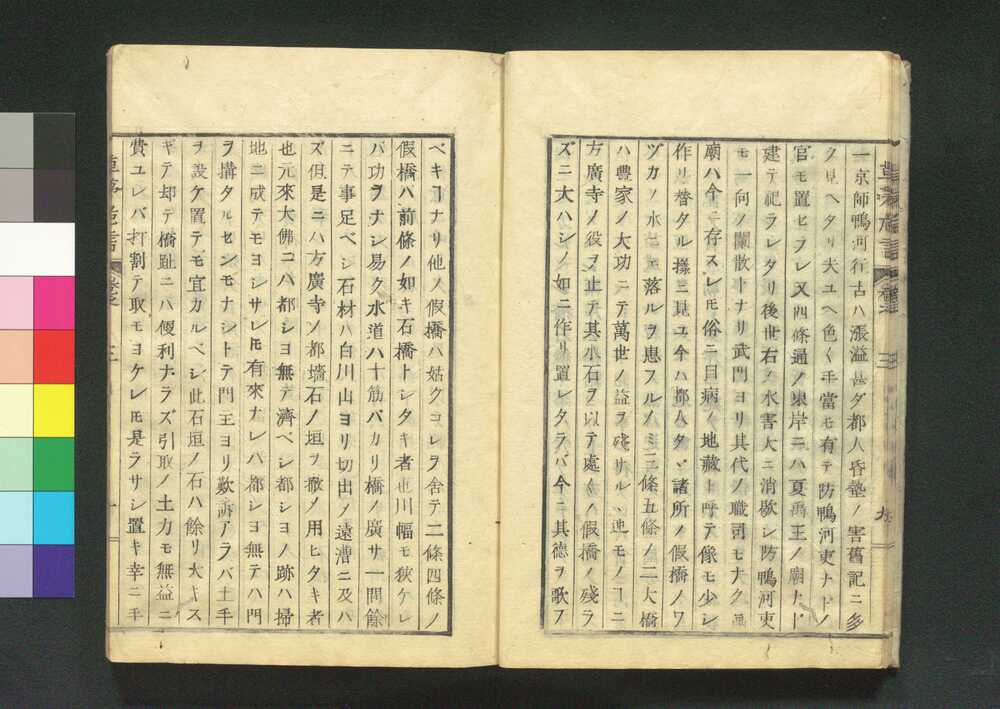 一京師鴨河行古ハ漲溢甚ダ都人昏墊ノ害舊記ニ多
ク見ヘタリ夫ユヘ色〱手當モ有テ防鴨河吏ナドノ
官モ置ヒラレ又四條通ノ東岸ニハ夏禹王ノ廟ナド
建テ祀ラレタリ後世右ノ水害大ニ消歇シ防鴨河吏
モ一向ノ閑散トナリ武門ヨリ其代ノ職司モナク禹
廟ハ今ニ存スレモ俗ニ目病ノ地藏ト呼テ像モ少シ
作リ替タル樣ニ見ユ今ハ都人タヾ諸所ノ假橋ノワ
ヅカノ水ニモ落ルヲ患フルノミ三條五條ノ二大橋
ハ豊家ノ大功ニテ萬世ノ益ヲ殘サル、迚モノヿニ
方廣寺ノ役ヲ止テ其木石ヲ以テ處〱ノ假橋ノ殘ラ
ズ二大ハシノ如ニ作リ置レタラバ今ニ其德ヲ歌フ
ベキヿナリ他ノ假橋ハ姑クコレヲ舍テ二條四條ノ
假橋ハ前條ノ如キ石橋トシタキ者也川幅モ狹ケレ
バ功ヲナシ易ク水道ハ十筋バカリ橋ノ廣サ一間餘
ニテ事足ベシ石材ハ白川山ヨリ切出ノ遠漕ニ及ハ
ズ但是ニハ方廣寺ノ都墻石ノ垣ヲ撤ノ用ヒタキ者
也元來大佛ニハ都ショ無テ濟ベシ都ショノ跡ハ掃
地ニ成テモヨシサレ𪜈有來ナレハ都ショ無テハ門
ヲ搆タルセンモナシトテ門主ヨリ歎訴アラバ土手
ヲ設ケ置テモ宜カルベシ此石垣ノ石ハ餘リ大キス
ギテ却テ橋趾ニハ便利ナラズ引取ノ土力モ無益ニ
費ユレバ打割テ取モヨケレモ是ラサシ置キ幸ニ手